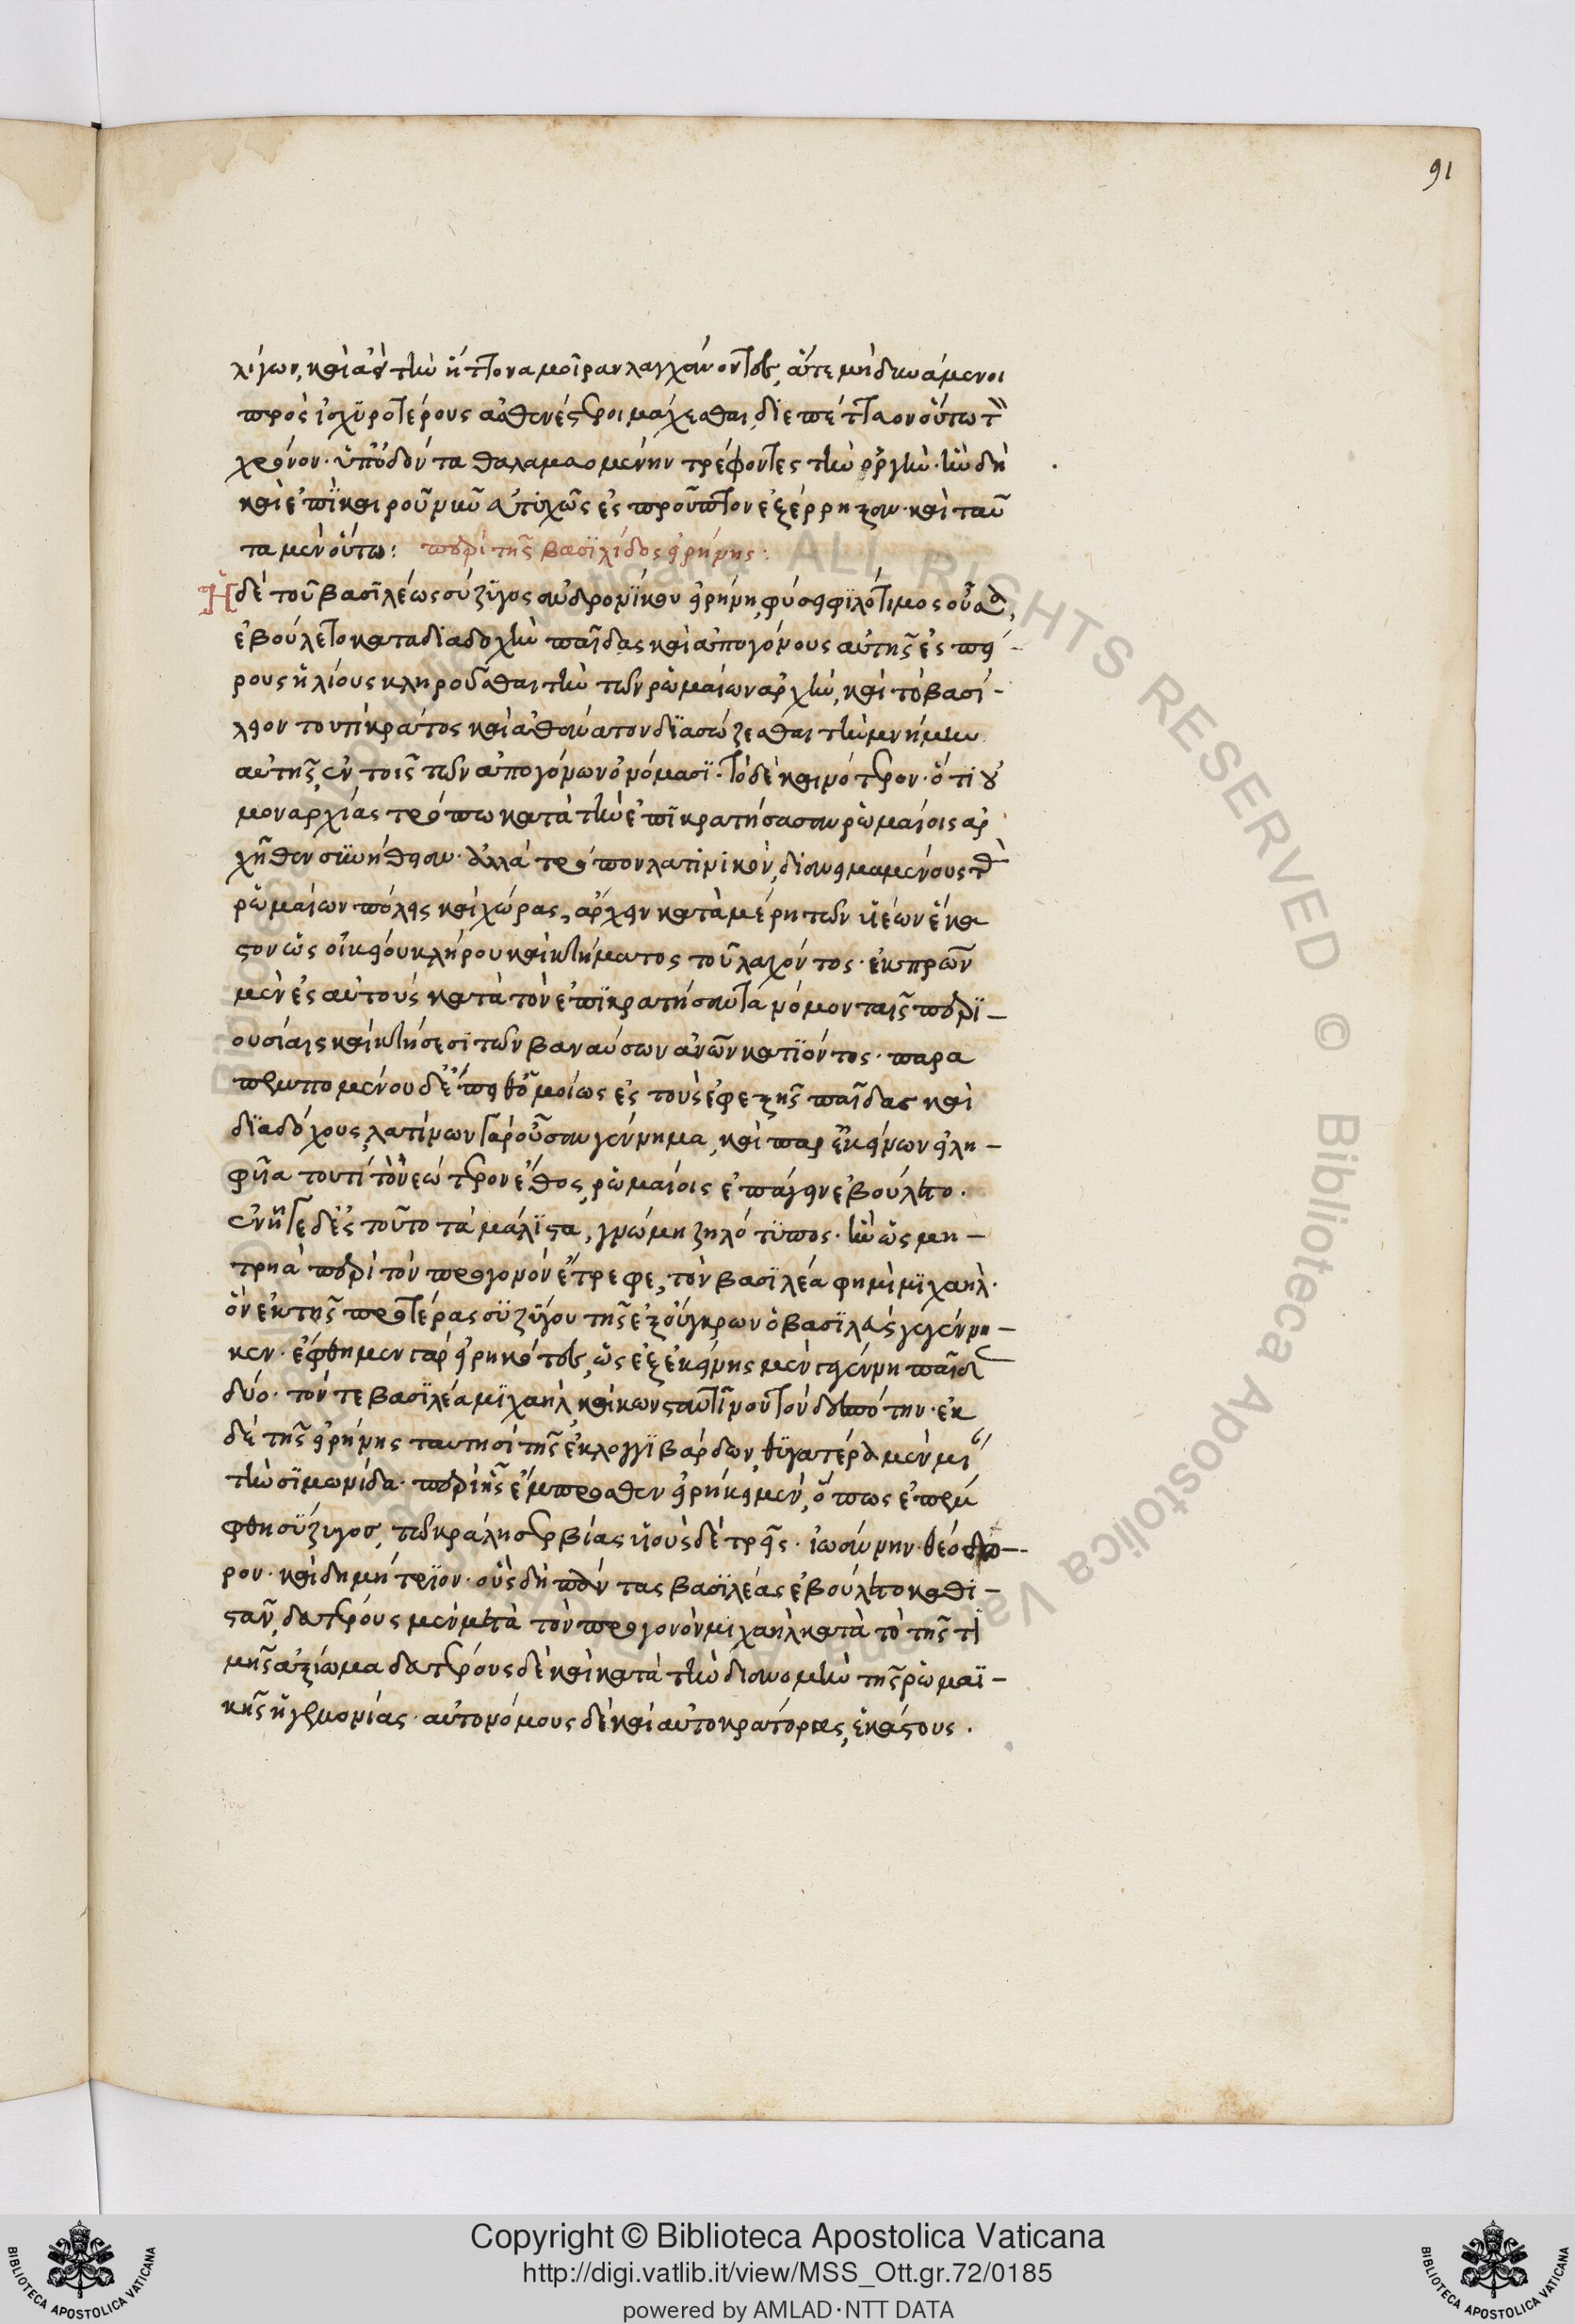 91
λίγων, καὶ ἀεὶ τὴν ἥττονα μοῖραν λαγχάνοντες, ἅτε μὴ δυνάμενοι
πρὸς ἰσχυροτέρους ἀσθενέστεροι μάχεσθαι, διεπέττασον οὕτω τὸν
χρόνον. ὑποδόντα θαλαμασομένην τρέφοντες τὴν ὀργήν. ἣν δὴ
καὶ ἐπὶ καιροῦ νῦν ἀτυχῶς ἐς προῦπτον ἐξέρρηξαν. καὶ ταῦ
τα μὲν οὕτω: περὶ τῆς βασιλίδος εἰρήνης:
Ἡ δὲ τοῦ βασιλέως σύζυγος ἀνδρονίκου εἰρήνη, φύσει φιλότιμος οὖσα,
ἐβούλετο κατὰ διαδοχὴν παῖδας καὶ ἀπογόνους αὐτῆς ἐς ἀπεί-
ρους ἡλίους κληροῦσθαι τὴν τῶν ῥωμαίων ἀρχήν, καὶ τὸ βασί-
λειον τουτὶ κράτος καὶ ἀθάνατον διασώζεσθαι τὴν μνήμην
αὐτῆς, ἐν τοῖς τῶν ἀπογόνων ὀνόμασι. τὸ δὲ καινότερον. ὅτι οὐ
μοναρχίας τρόπω κατὰ τὴν ἐπικρατήσασαν ῥωμαίοις ἀρ
χῆθεν συνήθειαν. ἀλλὰ τρόπον λατινικόν, διανειμαμένους τὰς
ῥωμαίων πόλεις καὶ χώρας, ἄρχειν κατὰ μέρη τῶν υἱέων ἕκα
στον ὡς οἰκείου κλήρου καὶ κτήματος τοῦ λαχόντος. ἐκ πατέρων
μὲν ἐς αὐτοὺς κατὰ τὸν ἐπικρατήσαντα νόμον ταῖς περι-
ουσίαις καὶ κτήσεσι τῶν βαναύσων ἀνῶν κατιόντος. παρα
πεμπομένου δ' ἔπειθ' ὁμοίως ἐς τοὺς ἐφεξῆς παῖδας καὶ
διαδόχους, λατίνων γὰρ οὖσαν γέννημα, καὶ παρ' ἐκείνων εἰλη-
φυῖα τουτὶ τὸ νεώτερον ἔθος, ῥωμαίοις ἐπάγειν ἐβούλετο.
ἐνῆγε δ' ἐς τοῦτο τὰ μάλιστα, γνώμη ζηλότυπος. ἣν ὡς μη-
τρυιὰ περὶ τὸν προγονὸν ἔτρεφε, τὸν βασιλέα φημὶ μιχαήλ.
ὃν ἐκ τῆς προτέρας συζύγου τῆς ἐξ οὔγκρων ὁ βασιλεὺς γεγέννη-
κεν. ἔφθημεν γὰρ εἰρηκότες, ὡς ἐξ ἐκείνης μὲν ἐγέννη παῖδας
δύο. τόν τε βασιλέα μιχαήλ, καὶ κωνσταντῖνον τὸν δεσπότην. ἐκ
δὲ τῆς εἰρήνης ταυτησὶ τῆς ἐκ λογγιβάρδων, θυγατέρα μὲν μίαν
τὴν σιμωνίδα. περὶ ἧς ἔμπροσθεν εἰρήκειμεν, ὅπως ἐπέμ
φθη σύζυγος, τῶ κράλη σερβίας υἱοὺς δὲ τρεῖς. ἰωάννην. θεόδω-
ρον. καὶ δημήτριον. οὓς δὴ πάντας βασιλέας ἐβούλετο καθι-
στᾶν, δευτέρους μὲν μετὰ τὸν προγονὸν μιχαὴλ κατὰ τὸ τῆς τι
μῆς ἀξίωμα δευτέρους δὲ καὶ κατὰ τὴν διανομὴν τῆς ῥωμαϊ-
κῆς ἡγεμονίας. αὐτονόμους δὲ καὶ αὐτοκράτορας, ἑκάστους.
Copyright © Biblioteca Apostolica Vaticana
http://digi.vatlib.it/view/MSS_Ott.gr.72/0185
powered by AMLAD·NTT DATA